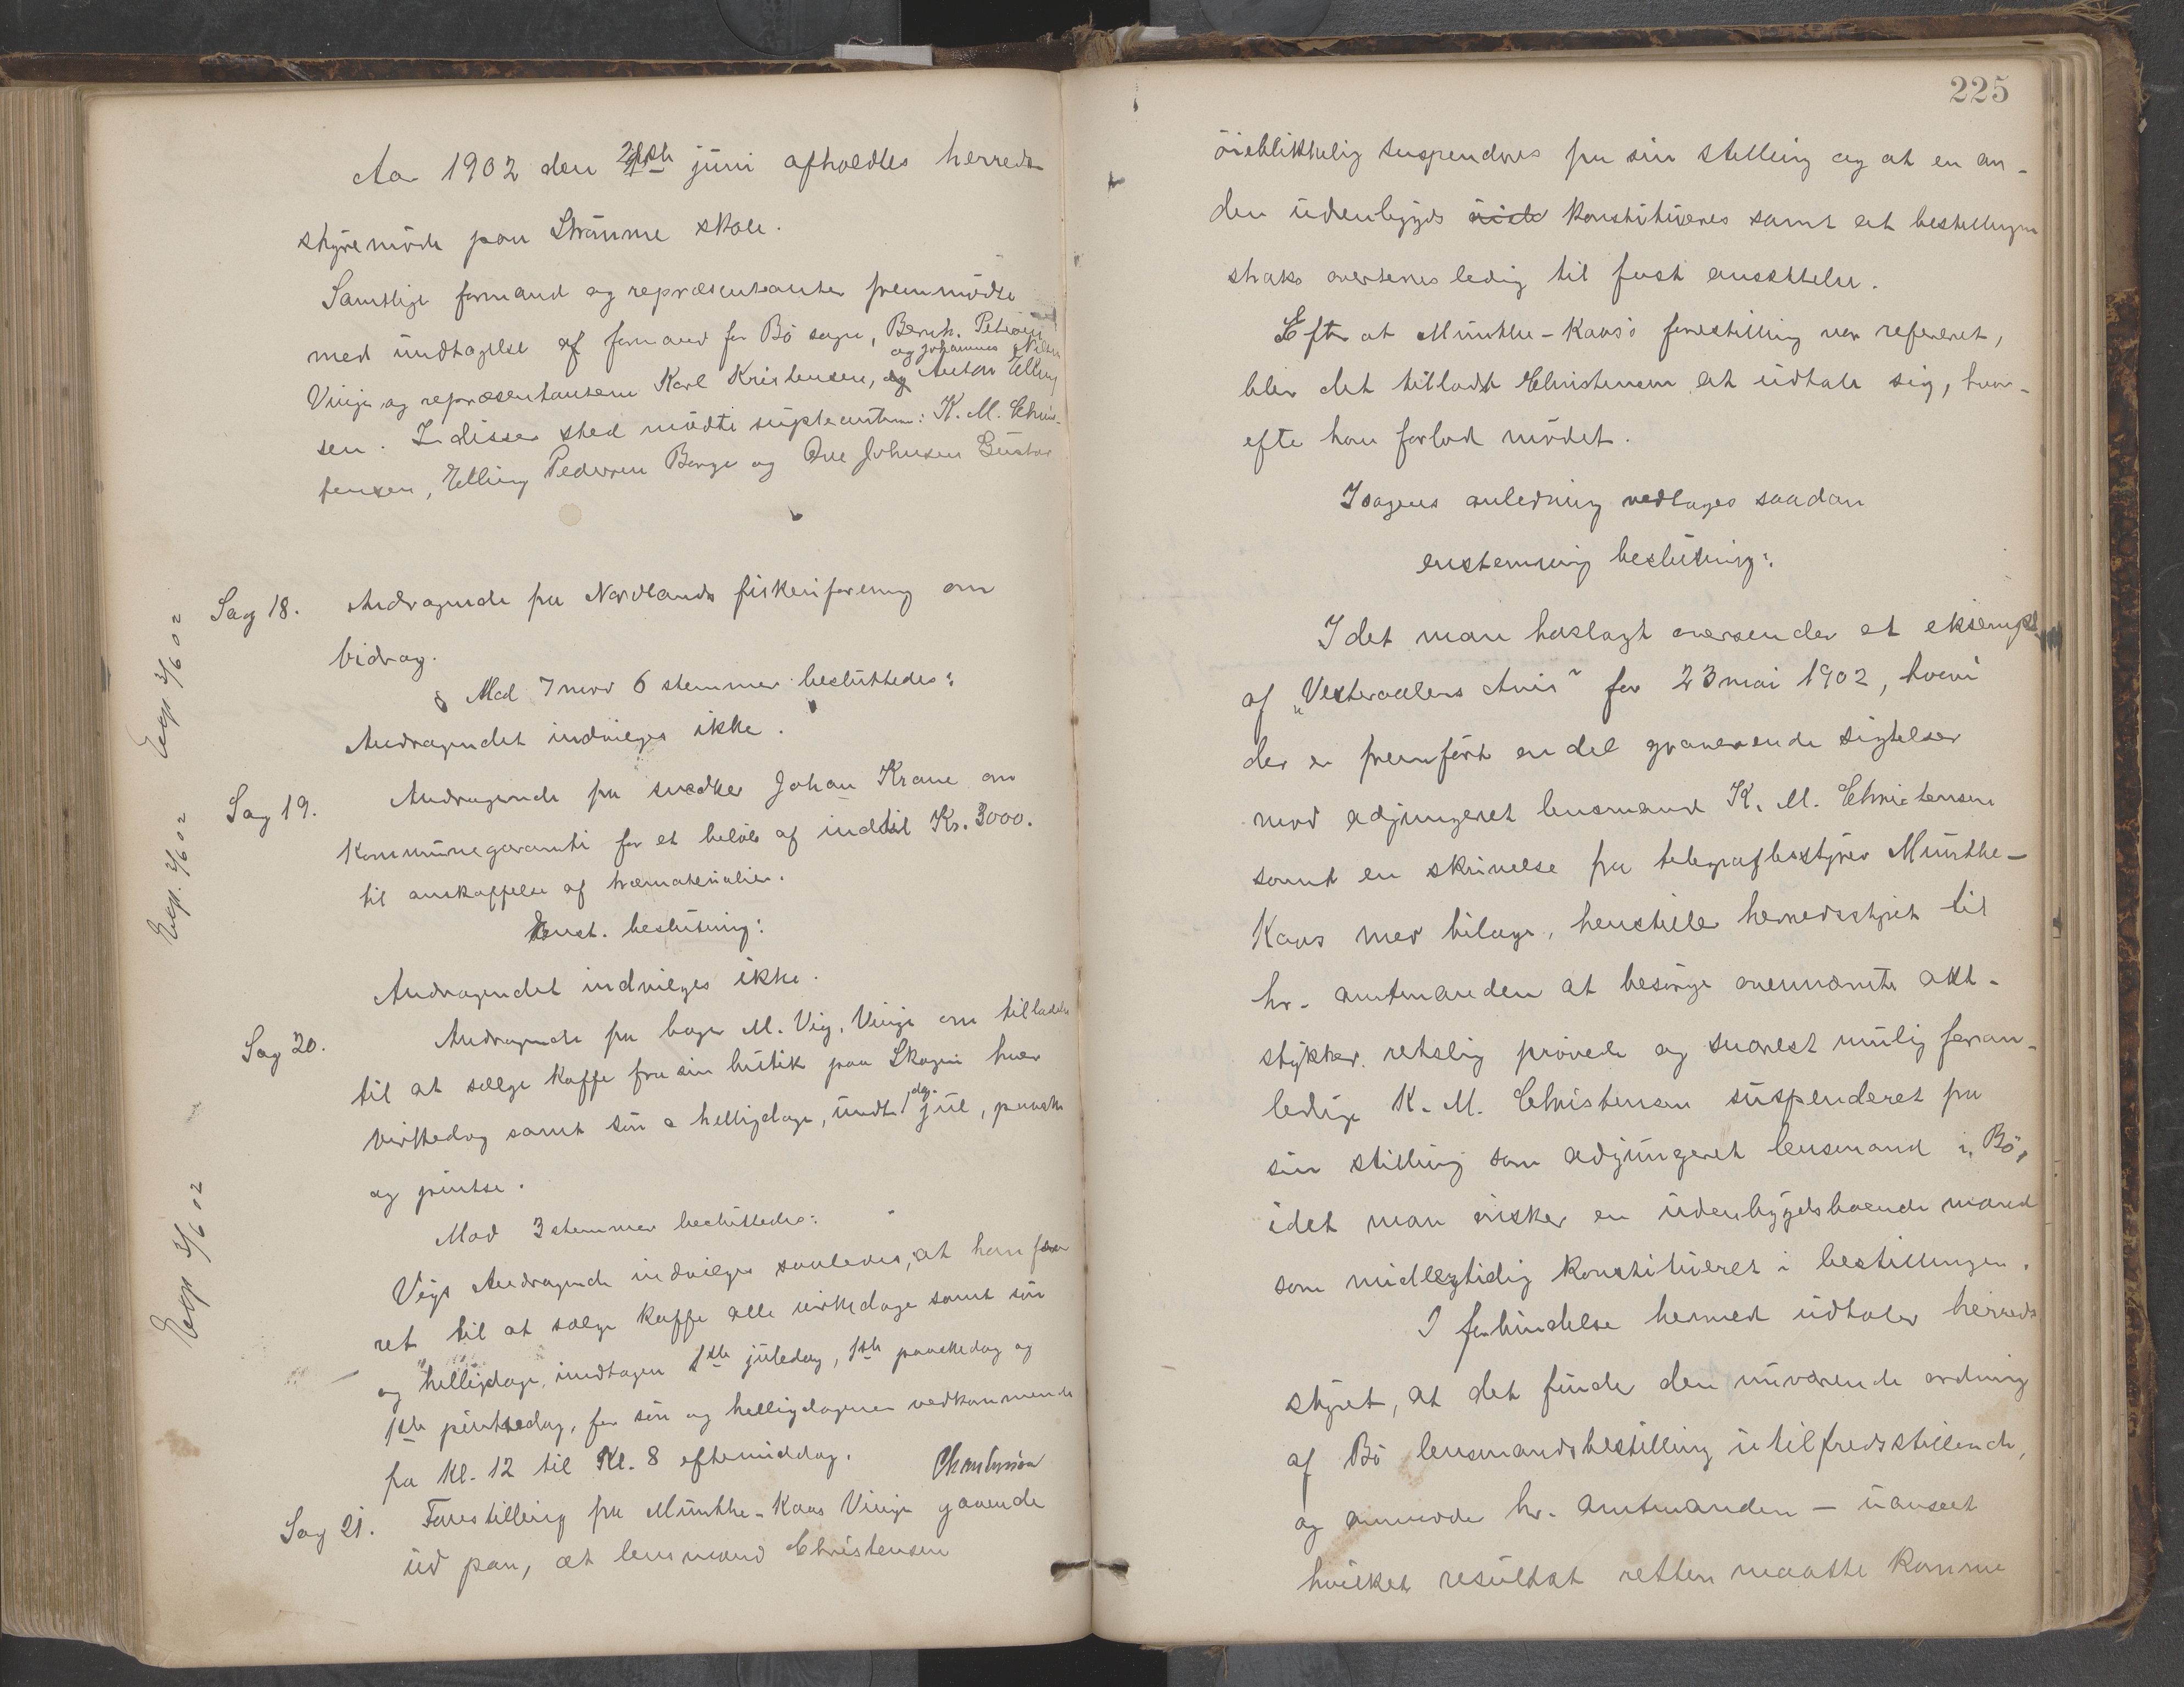 Aar 1902 den juni afholdtes herreds
styremöde paa Straume skole.
Samtlige formænd og repræsentanter fremmödte
med undtagelse af formand for Bö sogn, Bernh. Petersen
og Johannes Nilsen
Vinje og repræsentantene Karl Kristensen, og Anton Elling
sen. I disses sted mödte supleanterne: K. M. Chris-
tensen, Elling Pedersen Berge og Ove Johnsen Gustav
Sag 18. Andragende fra Nordlands fiskeriforening om
bidrag.
Med 7 mod 6 stemmer besluttedes:
Andragendet indvilges ikke.
Exp 2/6 02
Sag 19. Andragende fra snedker Johan Krane om
Kommunegaranti for et belöb af indtil Kr. 3000.
til anskaffelse af træmaterialier.
Enst. beslutning:
Andragendet indvilges ikke.
Exp. 2/6 02
Sag 20. Andragende fra bager M. Vig, Vinje om tilladelse
til at sælge kaffe fra sin butik paa Skagen hver
virkedag samt sön & helligdage, undt. 1 dag jul, paaske
og pintse.
Mod 3 stemmer besluttedes:
Vigs Andragende indvilges saaledes, at han faar
ret til at sælge kaffe alle virkedage samt sön
og helligdage, undtagen 1ste juledag, 1ste paaskedag og
1ste pintsedag, for sön og helligdagenes vedkommende
fra Kl. 12 til Kl. 8 eftermiddag.
Exp 2/6 02
Sag 21. Forestilling fra Munthe-Kaas Vinje gaaende
ud paa, at lensmand Christensen
225
öieblikkelig suspenderes fra sin stilling og at en an-
den udenbygds konstitueres samt at bestillingen
straks averteres ledig til fast ansættelse.
Efter at Munthe-Kaas's forestilling var refereret,
blev det tilladt Christensen at udtale sig, hvor-
efter han forlod mödet.
I sagens anledning vedtages saadan
enstemmig beslutning:
I det man hoslagt oversender et eksempl.
af "Vesteraalens Avis" for 23 mai 1902, hvori
der er fremfört en del graverende sigtelser
mod adjungeret lensmand K. M. Christensen
samt en skrivelse fra telegrafbestyrer Munthe-
Kaas med bilage, henstiller herredsstyret til
hr. amtmanden at besörge ovennævnte akt-
stykker retslig prövede og snarest mulig foran-
ledige K. M. Christensen suspenderet fra
sin stilling som adjungeret lensmand i Bö,
idet man önsker en udenbygdsboende mand
som midlertidig konstitueret i bestillingen.
I forbindelse hermed udtaler herreds
styret, at det finder den nuværende ordning
af Bö lensmandsbestilling utilfredsstillende,
og anmoder hr. amtmanden – uanseet
hvilket resultat retten maatte komme